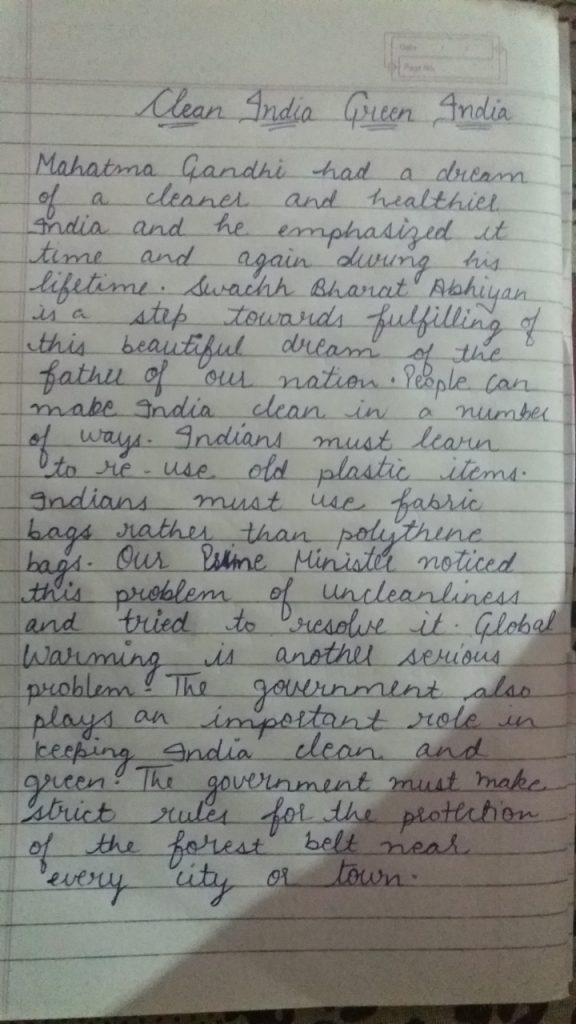 Date / /
Page No.
Clean India Green India
Mahatma Gandhi had a dream
of a cleaner and healthier
India and he emphasized it
time and again during his
lifetime. Swachh Bharat Abhiyan
is a step towards fulfilling of
this beautiful dream of the
father of our nation. People can
make India clean in a number
of ways. Indians must learn
to re-use old plastic items.
Indians must use fabric
bags rather than polythene
bags. Our Prime Minister noticed
this problem of uncleanliness
and tried to resolve it. Global
Warming is another serious
problem. The government also
plays an important role in
keeping India clean and
green. The government must make
strict rules for the protection
of the forest belt near
every city or town.